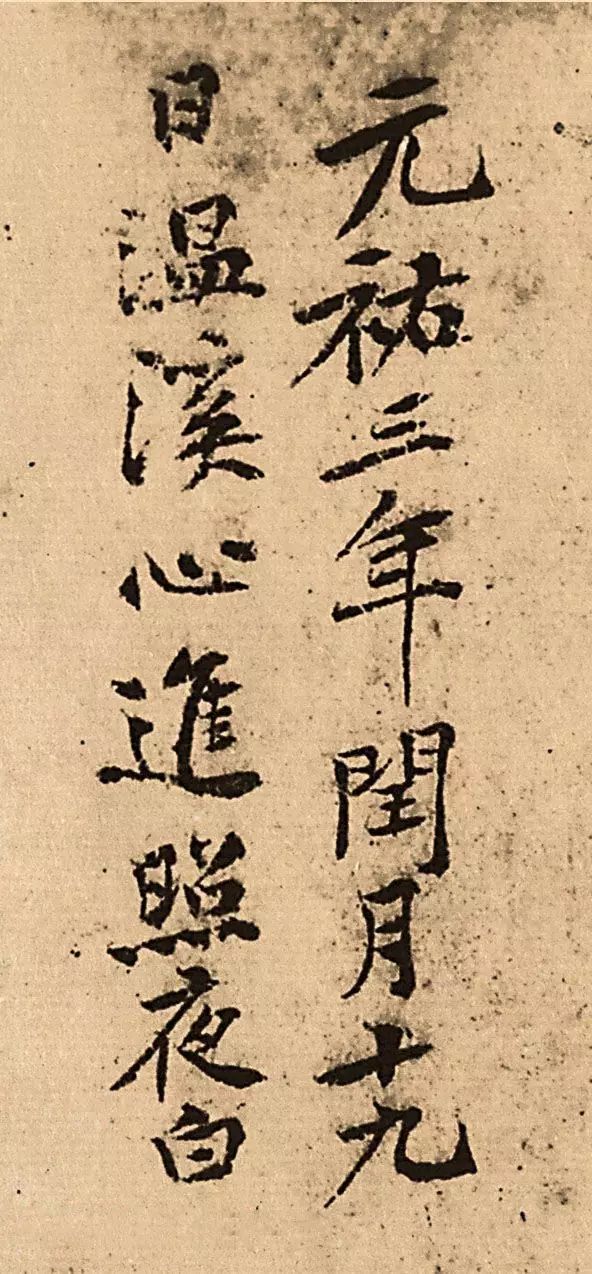 元祐三年閏月十九
日溫溪心進照夜白